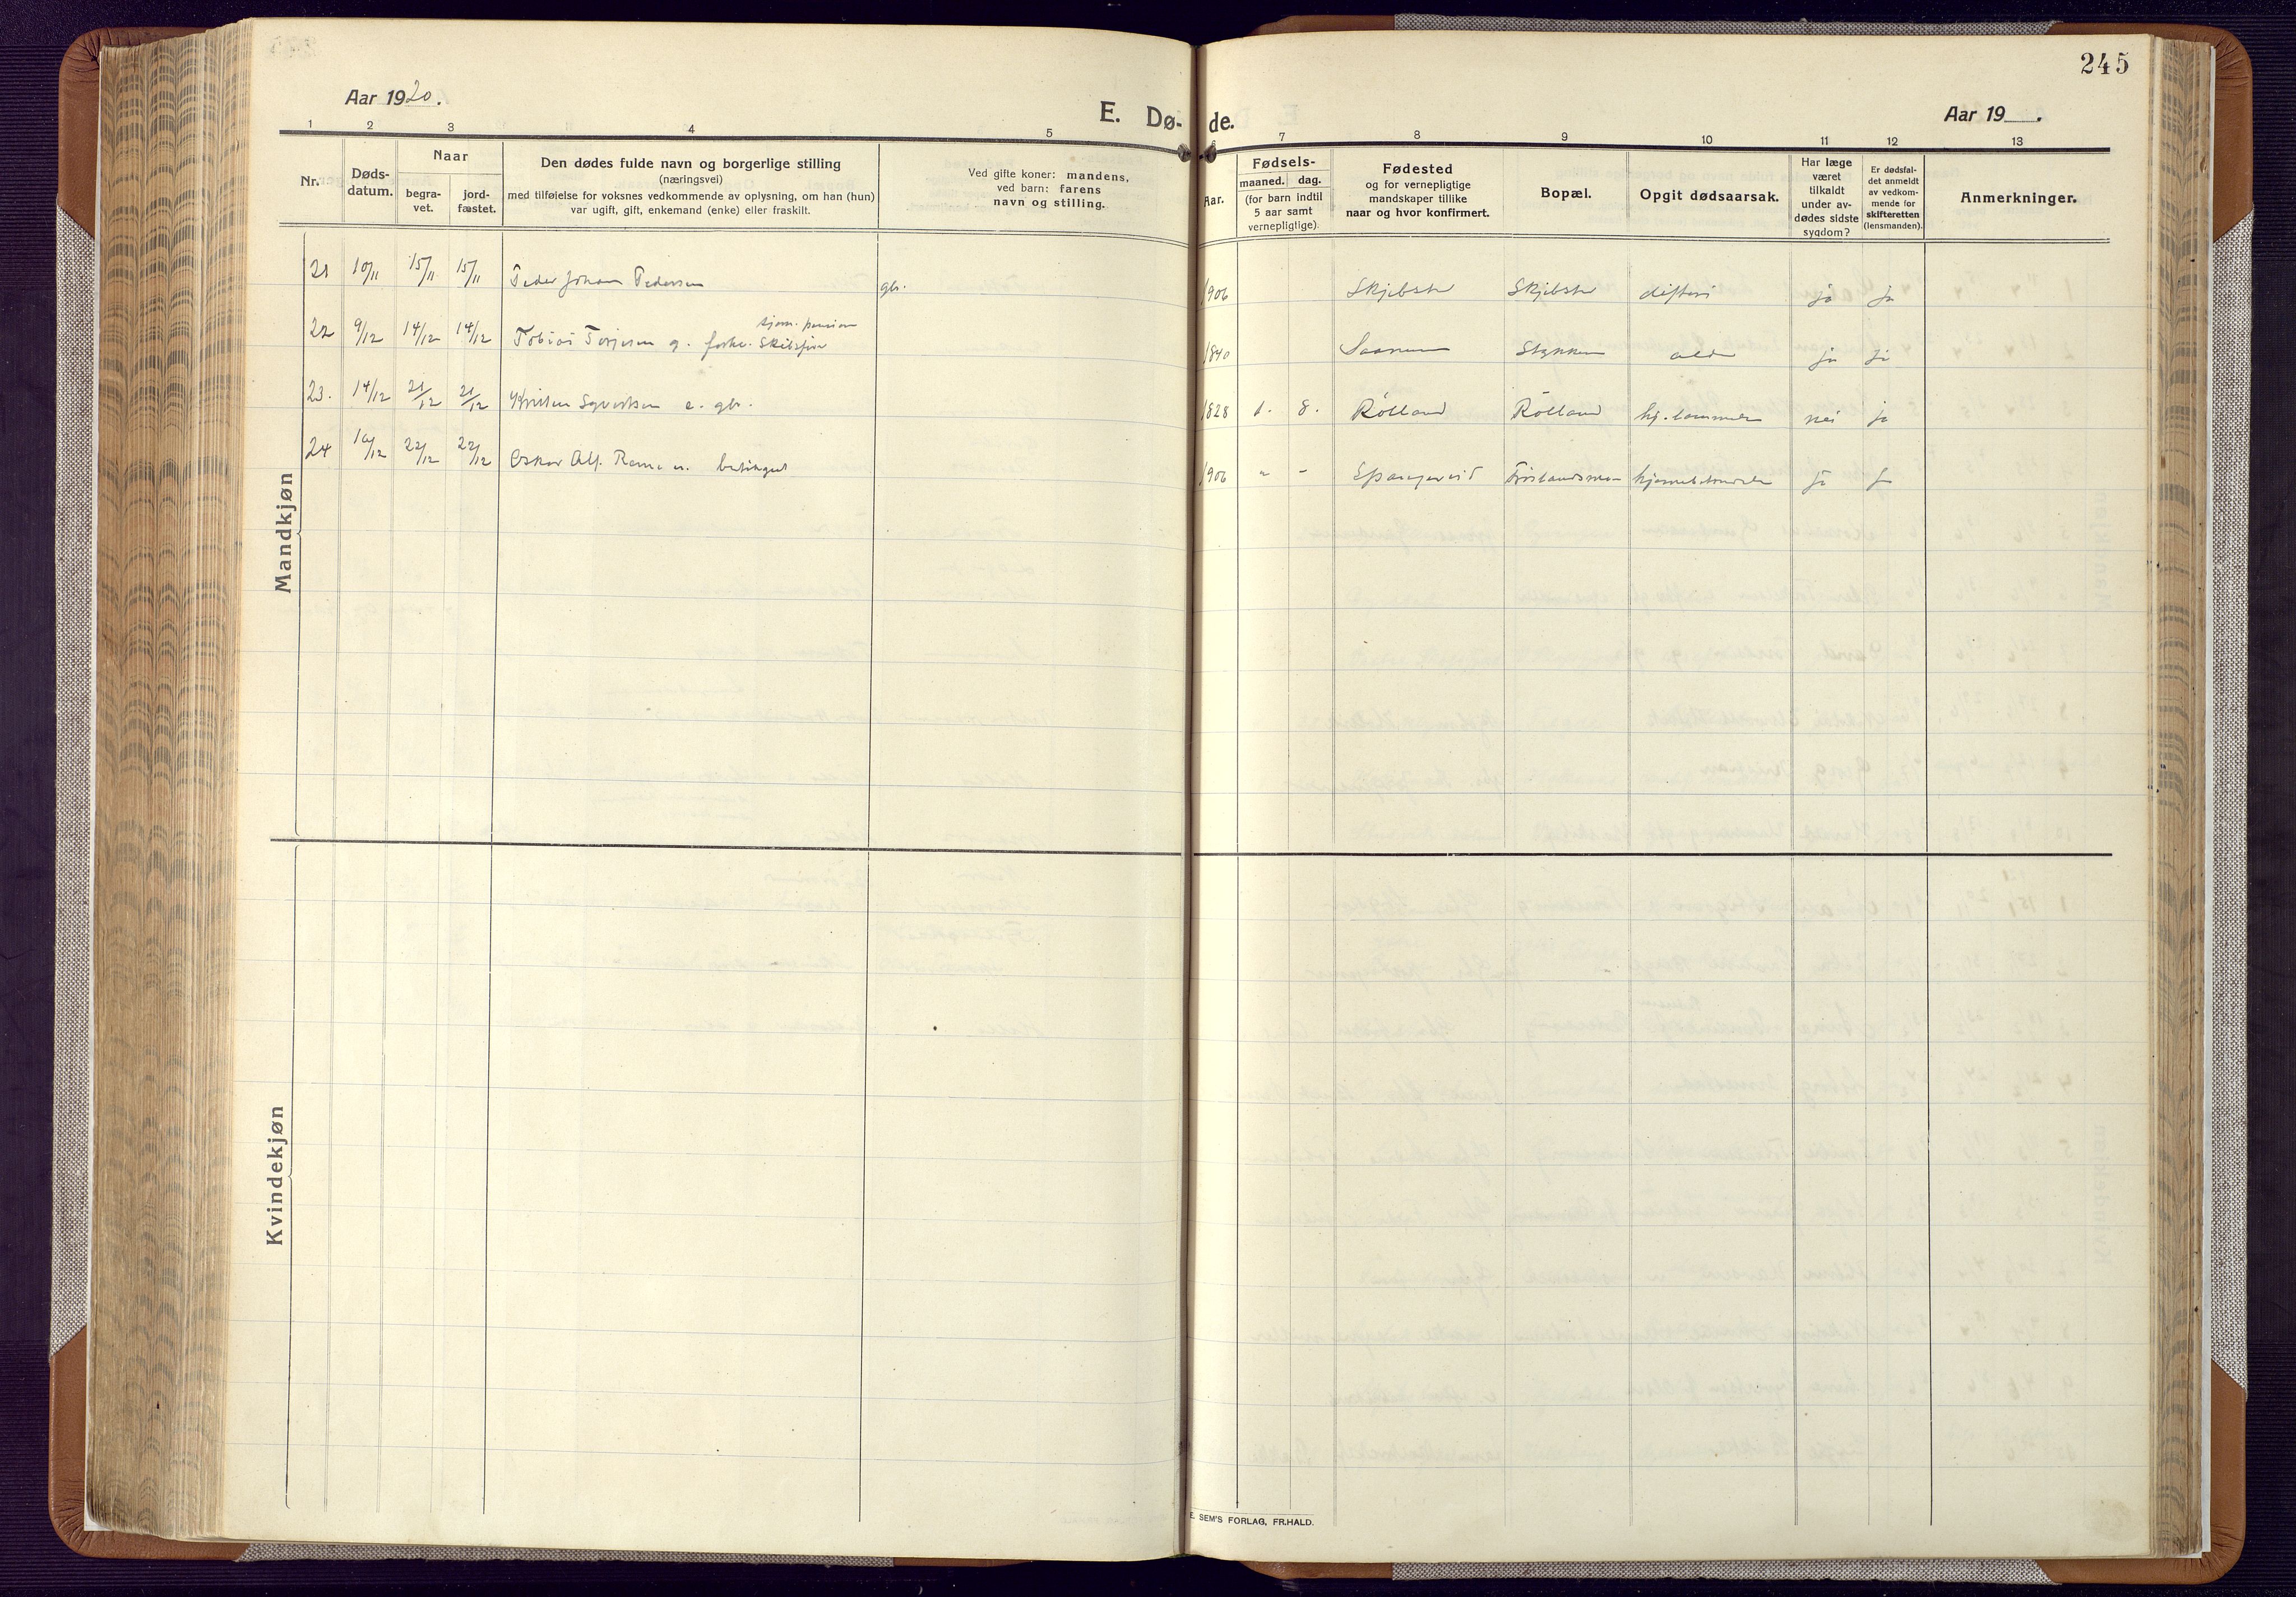 245
Aar 1920.
E. Dø- de.
Aar 19 .
1 2 3 4 5 6 7 8 9 10 11 12 13
Nr.
Døds-
datum.
Naar
begra-
vet.
jord-
fæstet.
Den dødes fulde navn og borgerlige stilling
(næringsvei)
med tilføielse for voksnes vedkommende av oplysning, om han (hun)
var ugift, gift, enkemand (enke) eller fraskilt.
Ved gifte koner: mandens,
ved barn: farens
navn og stilling.
Aar.
Fødsels-
maaned. dag.
(for barn indtil
5 aar samt
vernepligtige).
Fødested
og for vernepligtige
mandskaper tillike
naar og hvor konfirmert.
Bopæl.
Opgit dødsaarsak.
Har læge
været
tilkaldt
under av-
dødes sidste
sygdom?
Er dødsfal-
det anmeldt
av vedkom-
mende for
skifteretten
(lensmanden).
Anmerkninger.
Mandkjøn
21 10/11 15/11 15/11 Peder Johan Pedersen gbr. 1906 difteri ja ja
22 9/12 14/12 14/12 Tobias Terjesen g. 1840 ja ja
23. 14/12 21/12 21/12 e. gbr. 1828 1. 8. Rölland Rölland nei ja
24 22/12 22/12 Oskar Alf. 1906 " - ja
Kvindekjøn
E. SEM'S FORLAG, FR.HALD.